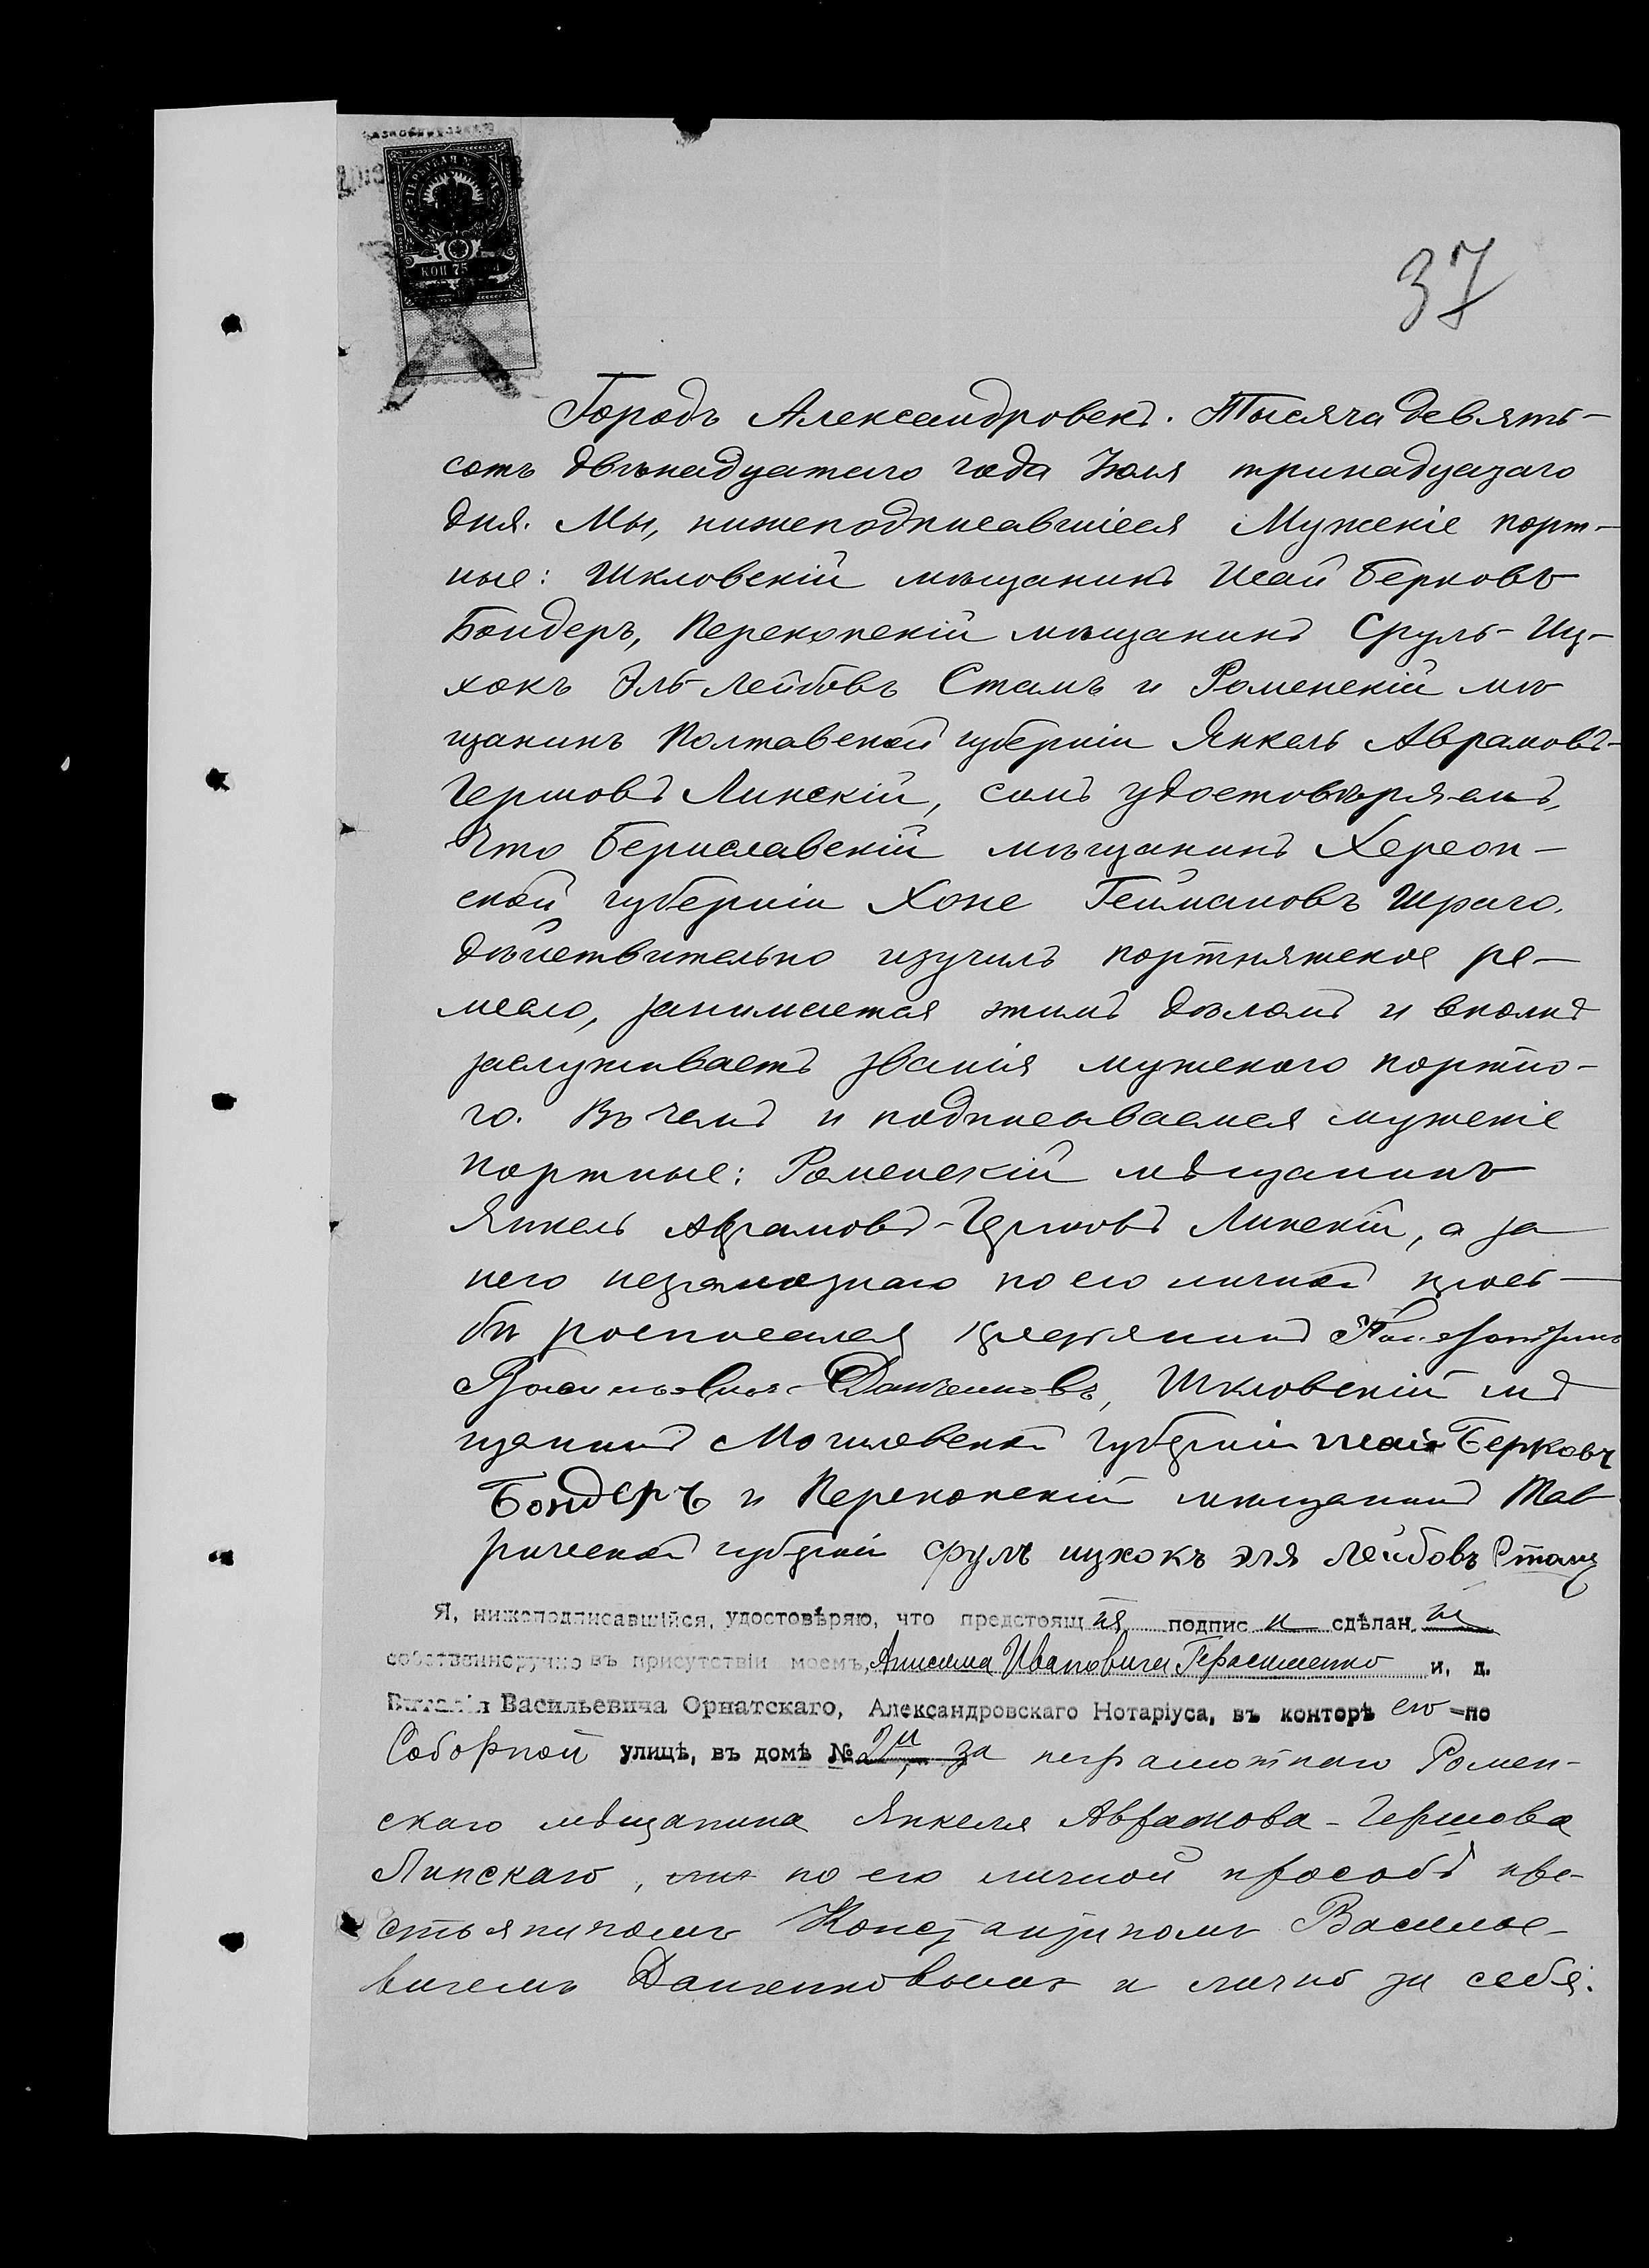 КОП 75
37
Городъ Александровскъ. Тысяча девять-
сотъ двѣнадцатаго года Іюля тринадцаго
дня. Мы, нижеподписавшіеся Мужскіе порт-
ные: Шкловскій мѣщанинъ Исай Берковъ
Бондеръ, Перекопскій мѣщанинъ Сруль-Иц-
хокъ Эль-Лейбовъ Стамъ и Роменскій мѣ
щанинъ Полтавской губерніи Янкель Аврамовъ-
Гершовъ Линскій, симъ удостовѣряемъ,
что Бериславскій мѣщанинъ Херсон-
ской губерніи Хоне Геймановъ Шраго.
дѣйствительно изучилъ портняжское ре-
месло, занимается этимъ дѣломъ и вполнѣ
заслуживаетъ званія мужского портно-
го. Въ чемъ и подписываемся мужскіе
портные: Роменскій мѣщанинъ
Янкель Аврамовъ-Гершовъ Линскій, а за
него неграмотнаго по его личной прось-
бѣ росписался крестьянинъ Константинъ
Васильевичъ Данченковъ, Шкловскій мѣ
щанинъ Могилевской губерніи Исай Берковъ
Бондеръ и Перекопскій мѣщанинъ Тав
рической губерніи Сруль ицхокъ эля Лейбовъ Стамъ
Я, нижеподписавшійся, удостовѣряю, что предстоящія подписи сдѣланы
собственноручно въ присутствіи моемъ, Анисима Ивановича Герасименко и. д.
Виталія Васильевича Орнатскаго, Александровскаго Нотаріуса, въ конторѣ его - по
Соборной улицѣ, въ домѣ № 2й, за неграмотнаго Ромен-
скаго мѣщанина Янкеля Аврамова-Гершова
Линскаго, по его личной просьбѣ кре-
стьяниномъ Константиномъ Василье-
вичемъ Данченковымъ и лично за себя: